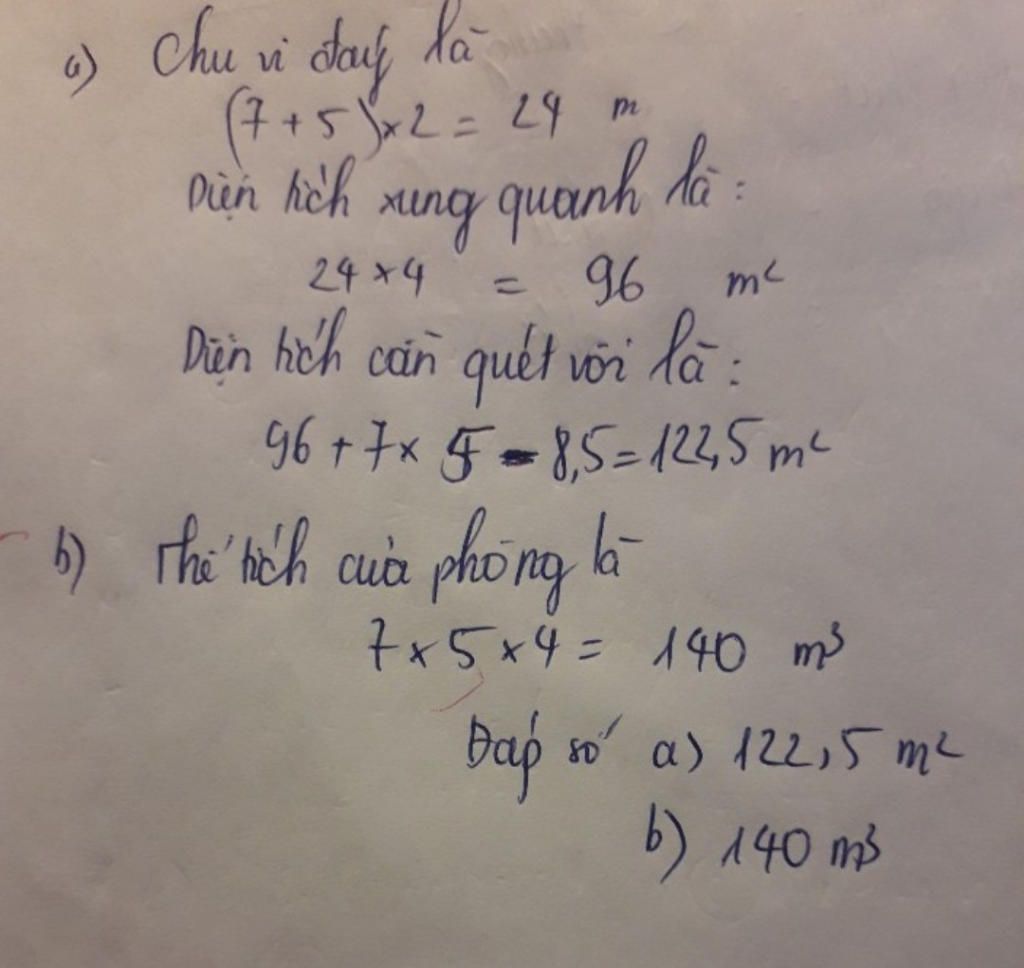 a) Chu vi đáy là
(7 + 5) x 2 = 24 m
Diện tích xung quanh là :
24 x 4 = 96 m²
Diện tích cần quét vôi là :
96 + 7 x 5 - 8,5 = 122,5 m²
b) Thể tích của phòng là
7 x 5 x 4 = 140 m³
Đáp số a) 122,5 m²
b) 140 m³